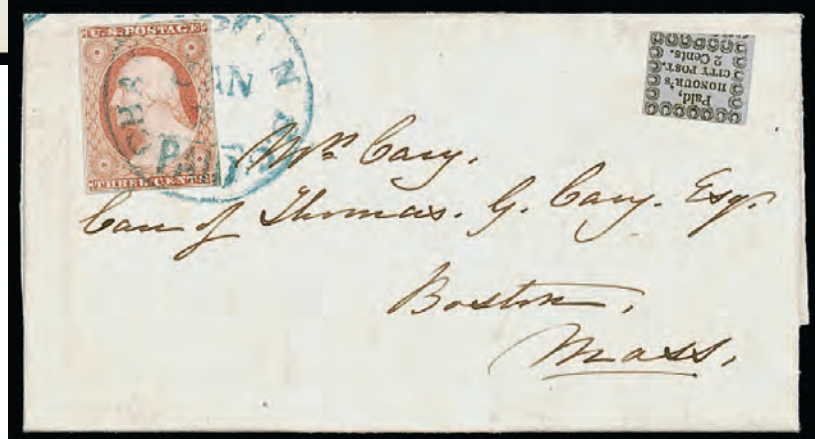 U.S. POSTAGE
THREE CENTS
PAID
Paid,
HONOUR's
CITY POST.
2 Cents.
Mrs Cary.
Care of Thomas. G. Cary. Esqr.
Boston,
Mass.